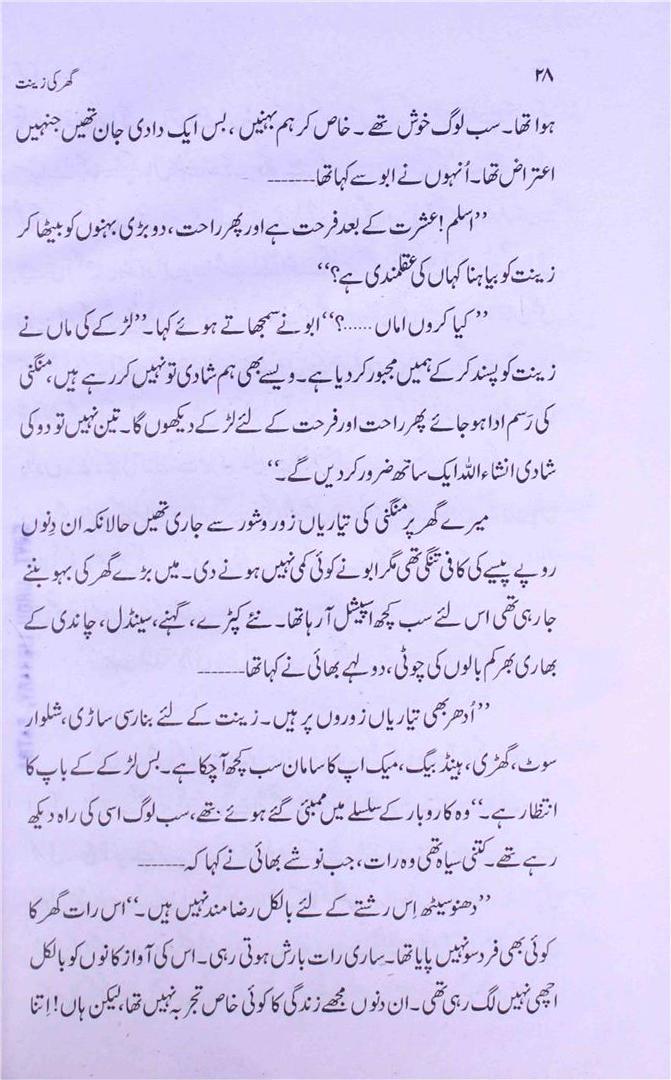 ۲۸
گھر کی زینت
ہوا تھا۔ سب لوگ خوش تھے۔ خاص کر ہم بہنیں، بس ایک دادی جان تھیں جنہیں
اعتراض تھا۔ اُنہوں نے ابو سے کہا تھا-------
’’اسلم! عشرت کے بعد فرحت ہے اور پھر راحت، دو بڑی بہنوں کو بیٹھا کر
زینت کو بیاہنا کہاں کی عقلمندی ہے؟‘‘
’’کیا کروں اماں ......؟‘‘ ابو نے سمجھاتے ہوئے کہا۔ ’’لڑکے کی ماں نے
زینت کو پسند کر کے ہمیں مجبور کر دیا ہے۔ ویسے بھی ہم شادی تو نہیں کر رہے ہیں، منگنی
کی رَسم ادا ہو جائے پھر راحت اور فرحت کے لئے لڑکے دیکھوں گا۔ تین نہیں تو دو کی
شادی انشاء اللہ ایک ساتھ ضرور کر دیں گے۔‘‘
میرے گھر پر منگنی کی تیاریاں زور و شور سے جاری تھیں حالانکہ ان دِنوں
روپے پیسے کی کافی تنگی تھی مگر ابو نے کوئی کمی نہیں ہونے دی۔ میں بڑے گھر کی بہو بننے
جا رہی تھی اس لئے سب کچھ اسپیشل آ رہا تھا۔ نئے کپڑے، گہنے، سینڈل، چاندی کے
بھاری بھرکم بالوں کی چوٹی، دولہے بھائی نے کہا تھا-------
’’اُدھر بھی تیاریاں زوروں پر ہیں۔ زینت کے لئے بنارسی ساڑی، شلوار
سوٹ، گھڑی، ہینڈ بیگ، میک اپ کا سامان سب کچھ آ چکا ہے۔ بس لڑکے کے باپ کا
انتظار ہے۔‘‘ وہ کاروبار کے سلسلے میں ممبئی گئے ہوئے تھے، سب لوگ اسی کی راہ دیکھ
رہے تھے۔ کتنی سیاہ تھی وہ رات، جب نوشے بھائی نے کہا کہ-------
’’دھنو سیٹھ اِس رشتے کے لئے بالکل رضا مند نہیں ہیں۔‘‘ اس رات گھر کا
کوئی بھی فرد سو نہیں پایا تھا۔ ساری رات بارش ہوتی رہی۔ اس کی آواز کانوں کو بالکل
اچھی نہیں لگ رہی تھی۔ ان دنوں مجھے زندگی کا کوئی خاص تجربہ نہیں تھا، لیکن ہاں! اِتنا